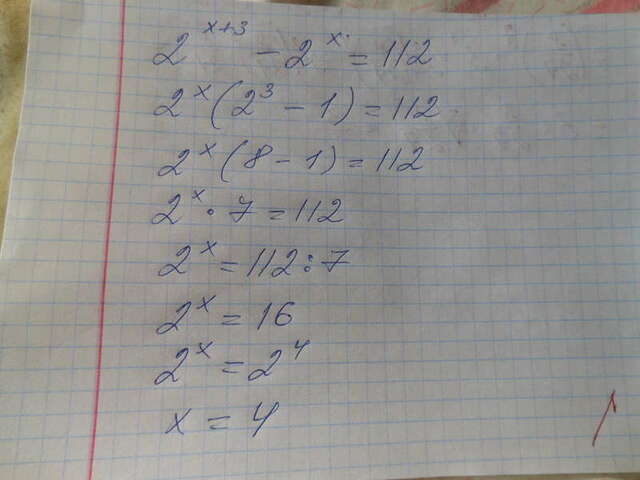 2^{x+3} - 2^x = 112
2^x (2^3 - 1) = 112
2^x (8 - 1) = 112
2^x · 7 = 112
2^x = 112 : 7
2^x = 16
2^x = 2^4
x = 4